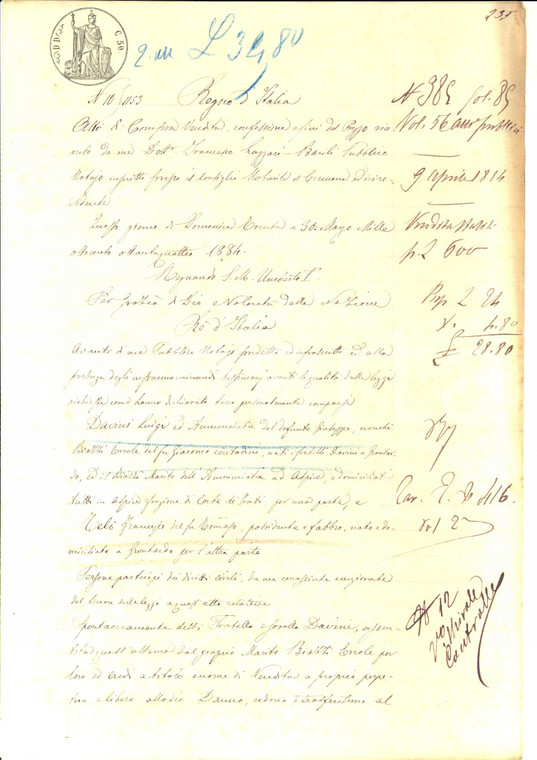 237
C. 50
2. un L 34,80
N 10/1053 Regno d'Italia
N 385 Vol. 85
Atto di Compra Vendita, confessione a fini del Pezzo rice
Vol. 56 atti pubblici
vuto da me Dott. Francesco Lazzari Pubblico
Notajo presso il Consiglio Notarile di Cremona ed ivi re
9 aprile 1884
sidente
Quest giorno di Domenica Trenta a 30. Marzo Mille
Vendita
ottocento ottantaquattro 1884.
p. 2 600
Regnando S. M. Umberto I°
Per grazia di Dio e Volontà della Nazione
24
Re d'Italia
4.80
£ 28.80
Avanti di me Pubblico Notajo predetto ed infrascritto ed alla
presenza degli infranominandi testimonj aventi le qualità dalla legge
richieste come hanno dichiarato sono personalmente comparsi
Davini Luigi ed Annunciata del defunto Giuseppe, nonchè
Biazzi Ercole del fu Giacomo contadini, nati i fratelli Davini a Gronta
do, ed il Biazzi Marito dell'Annunciata ad Aspice, domiciliati
tutti in Aspice frazione di Corte de' Frati per una parte, e
416
Teli Francesco del fu Tomaso, possidente e fabbro, nato e do
vol 2
miciliato a Grontardo per l'altra parte
Persone partecipi dei diritti civili, da me conosciute
del tenore delle leggi a quest'atto relative
N 12
Spontaneamente detti Fratello e Sorella Davini, assen
tita quest'ultima dal proprio Marito Biazzi Ercole per
Controllo
loro ed eredi a titolo oneroso di Vendita a proprio perpe
tuo e libero allodio Danno, cedono e trasferiscono al